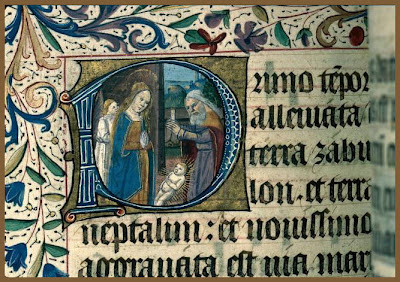 Primo tēpor
alleuiata
terra zabu
lon. et terra
neptalim: et nouissimo
aggrauata est uia mar